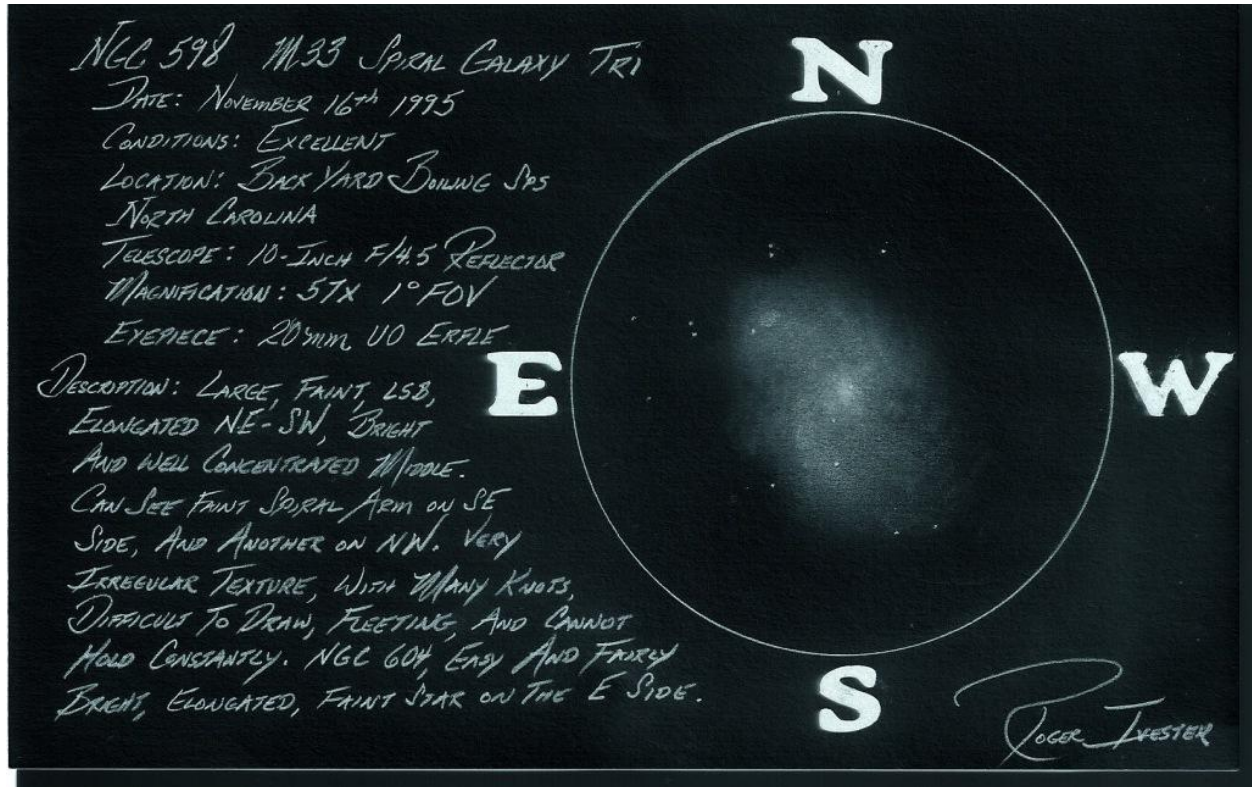 NGC 598 M33 SPIRAL GALAXY TRI
DATE: NOVEMBER 16th 1995
CONDITIONS: EXCELLENT
LOCATION: BACK YARD BOILING SPS
NORTH CAROLINA
TELESCOPE: 10-INCH F/4.5 REFLECTOR
MAGNIFICATION: 57X 1° FOV
EYEPIECE: 20mm UO ERFLE
DESCRIPTION: LARGE, FAINT, LSB,
ELONGATED NE-SW, BRIGHT
AND WELL CONCENTRATED MIDDLE.
CAN SEE FAINT SPIRAL ARM ON SE
SIDE, AND ANOTHER ON NW. VERY
IRREGULAR TEXTURE, WITH MANY KNOTS,
DIFFICULT TO DRAW, FLEETING, AND CANNOT
HOLD CONSTANTLY. NGC 604, EASY AND FAIRLY
BRIGHT, ELONGATED, FAINT STAR ON THE E SIDE.
N
E
W
S
ROGER IVESTER